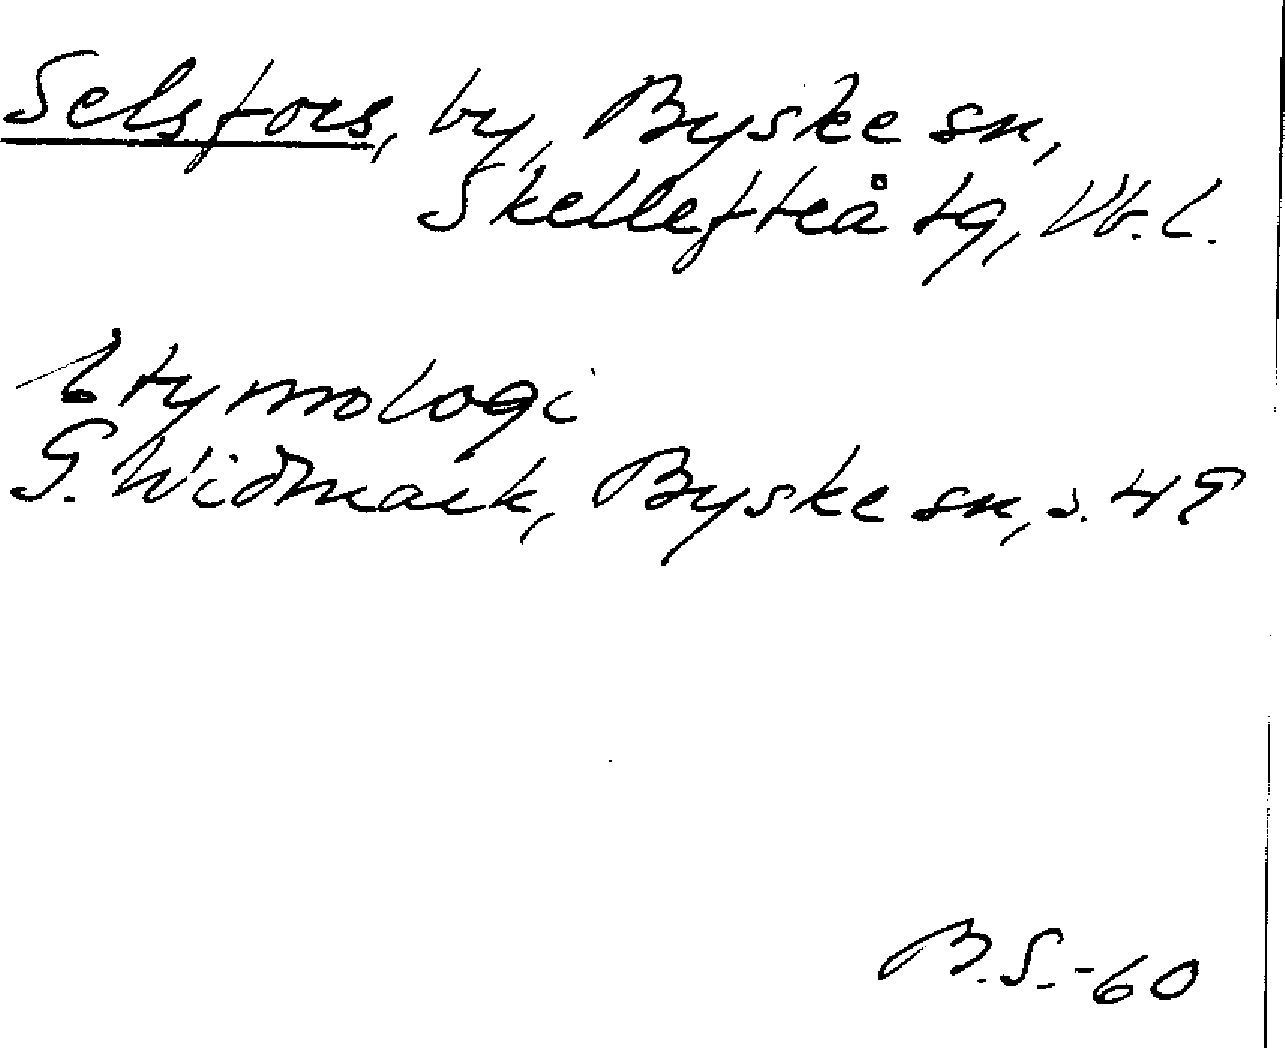 Selsfors, by, Byske sn,
Skellefteå tg, Vb. l.
Etymologi
G. Widmark, Byske sn, s. 49
B.S.-60